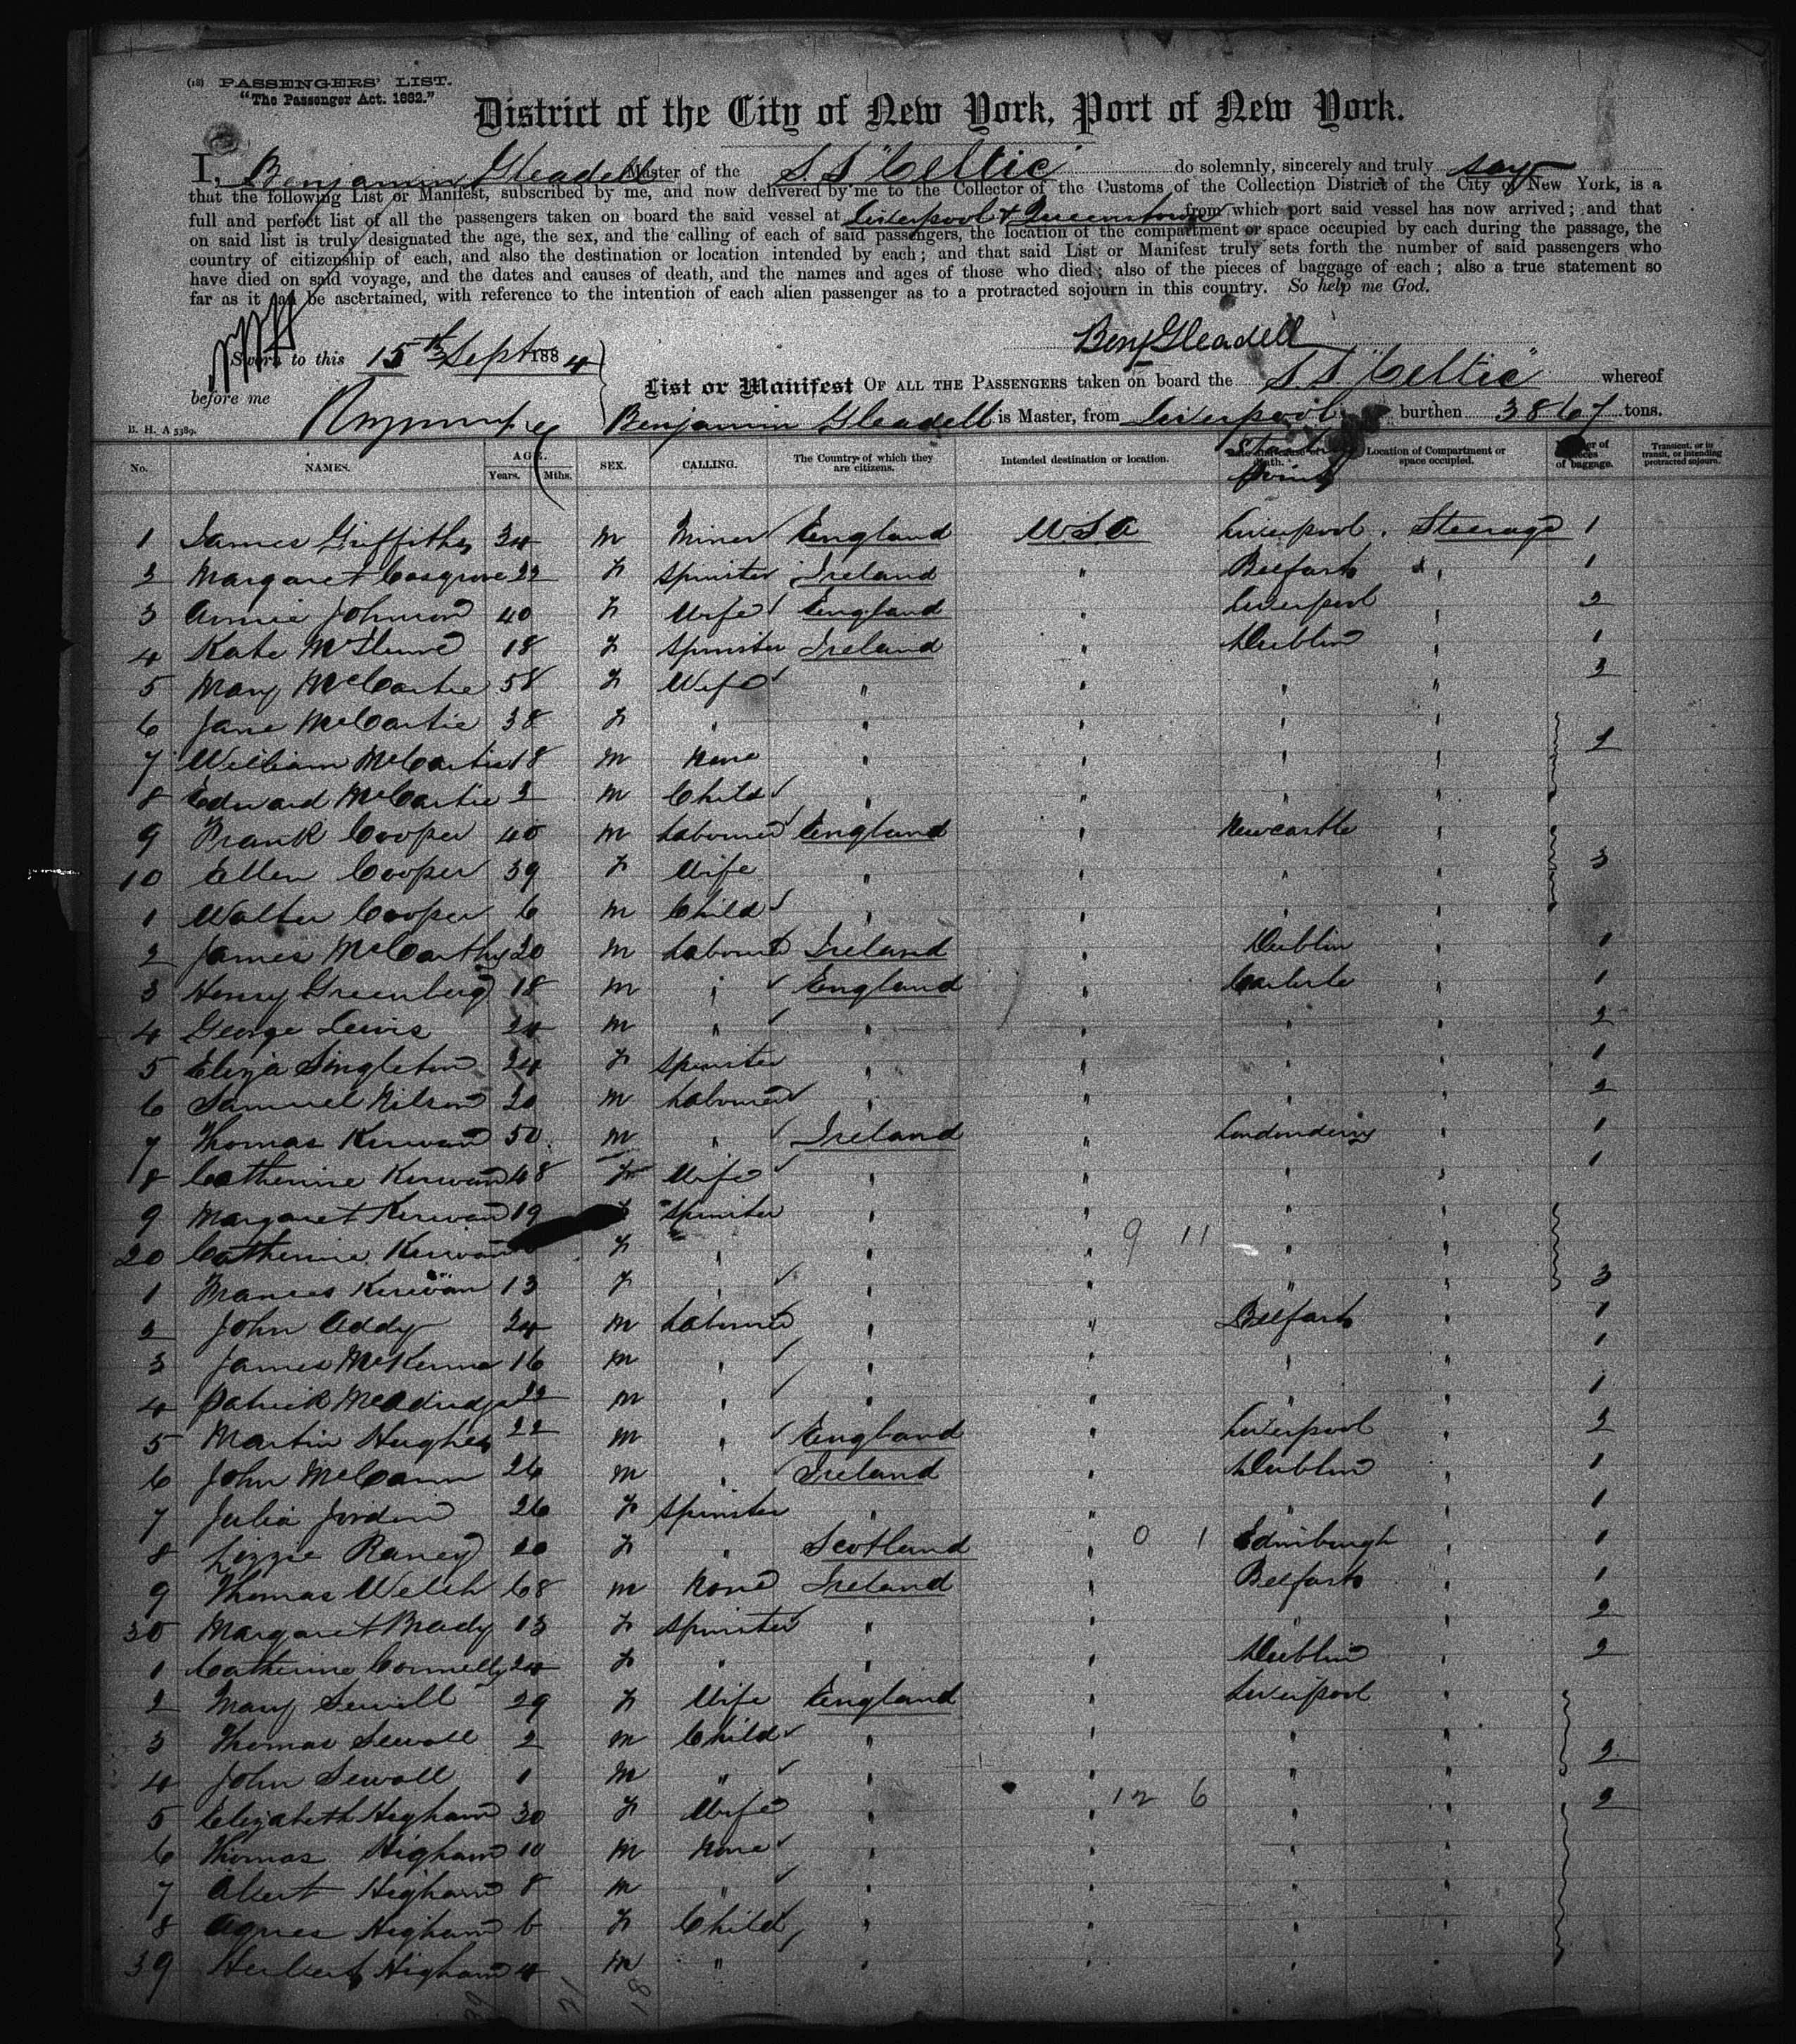 (18) PASSENGERS' LIST.
"The Passenger Act. 1882."
District of the City of New York, Port of New York.
I, Benjamin Gleadell Master of the S.S "Celtic" do solemnly, sincerely and truly say
that the following List or Manifest, subscribed by me, and now delivered by me to the Collector of the Customs of the Collection District of the City of New York, is a
full and perfect list of all the passengers taken on board the said vessel at Liverpool & Queenstown from which port said vessel has now arrived; and that
on said list is truly designated the age, the sex, and the calling of each of said passengers, the location of the compartment or space occupied by each during the passage, the
country of citizenship of each, and also the destination or location intended by each; and that said List or Manifest truly sets forth the number of said passengers who
have died on said voyage, and the dates and causes of death, and the names and ages of those who died; also of the pieces of baggage of each; also a true statement so
far as it can be ascertained, with reference to the intention of each alien passenger as to a protracted sojourn in this country. So help me God.
Benj Gleadell
Sworn to this 15th Sept 1884
before me
List or Manifest OF ALL THE PASSENGERS taken on board the S.S "Celtic" whereof
Benjamin Gleadell is Master, from Liverpool burthen 3867 tons.
B. H. A 5389.
No. NAMES. AGE. Years. Mths. SEX. CALLING. The Country of which they are citizens. Intended destination or location. Location of Compartment or space occupied. Number of pieces of baggage. Transient, or in transit, or intending protracted sojourn.
1 James Griffiths 34 M Miner England USA Liverpool Steerage 1
2 Margaret Cosgrove 22 F Spinster Ireland " Belfast " 1
3 Annie Johnson 40 F Wife England " Liverpool " 2
4 Kate 18 F Spinster Ireland " Dublin " 1
5 Mary McCartie 58 F Wife " " " " 3
6 Jane McCartie 38 F " " " " "
7 William McCartie 18 M None " " " "
8 Edward McCartie 3 M Child " " " "
9 Frank Cooper 40 M Labourer England " Newcastle "
10 Ellen Cooper 39 F Wife " " " " 3
1 Walter Cooper 6 M Child " " " "
2 James McCarthy 20 M Labourer Ireland " Dublin " 1
3 Henry Greenberg 18 M " England " Carlisle " 1
4 George Lewis 24 M " " " " " 2
5 Eliza Singleton 24 F Spinster " " " " 1
6 Samuel Nilson 20 M Labourer " " " " 2
7 Thomas Kerwan 50 M " Ireland " Londonderry " 1
8 Catherine Kerwan 48 F Wife " " " " 1
9 Margaret Kerwan 19 F Spinster " " " "
20 Catherine Kerwan F " " " 9 11 " "
1 Frances Kerwan 13 F " " " " " 3
2 John Addy 24 M Labourer " " Belfast " 1
3 James McKenna 16 M " " " " " 1
4 Patrick 22 M " " " " " 1
5 Martin Hughes 22 M " England " Liverpool " 2
6 John McCann 26 M " Ireland " Dublin " 1
7 Julia Jordon 26 F Spinster " " " " 1
8 Lizzie Raney 20 F " Scotland " 0 1 Edinburgh " 1
9 Thomas Welsh 68 M None Ireland " Belfast " 1
30 Margaret Brady 13 F Spinster " " " " 2
1 Catherine Connelly 24 F " " " Dublin " 2
2 Mary Sewell 29 F Wife England " Liverpool "
3 Thomas Sewell 2 M Child " " " " 2
4 John Sewell 1 M " " " " "
5 Elizabeth Higham 30 F Wife " " 12 6 " " 2
6 Thomas Higham 10 M None " " " "
7 Albert Higham 8 M " " " " "
8 Agnes Higham 6 F Child " " " "
39 Herbert Higham 4 M " " " " "
21 18